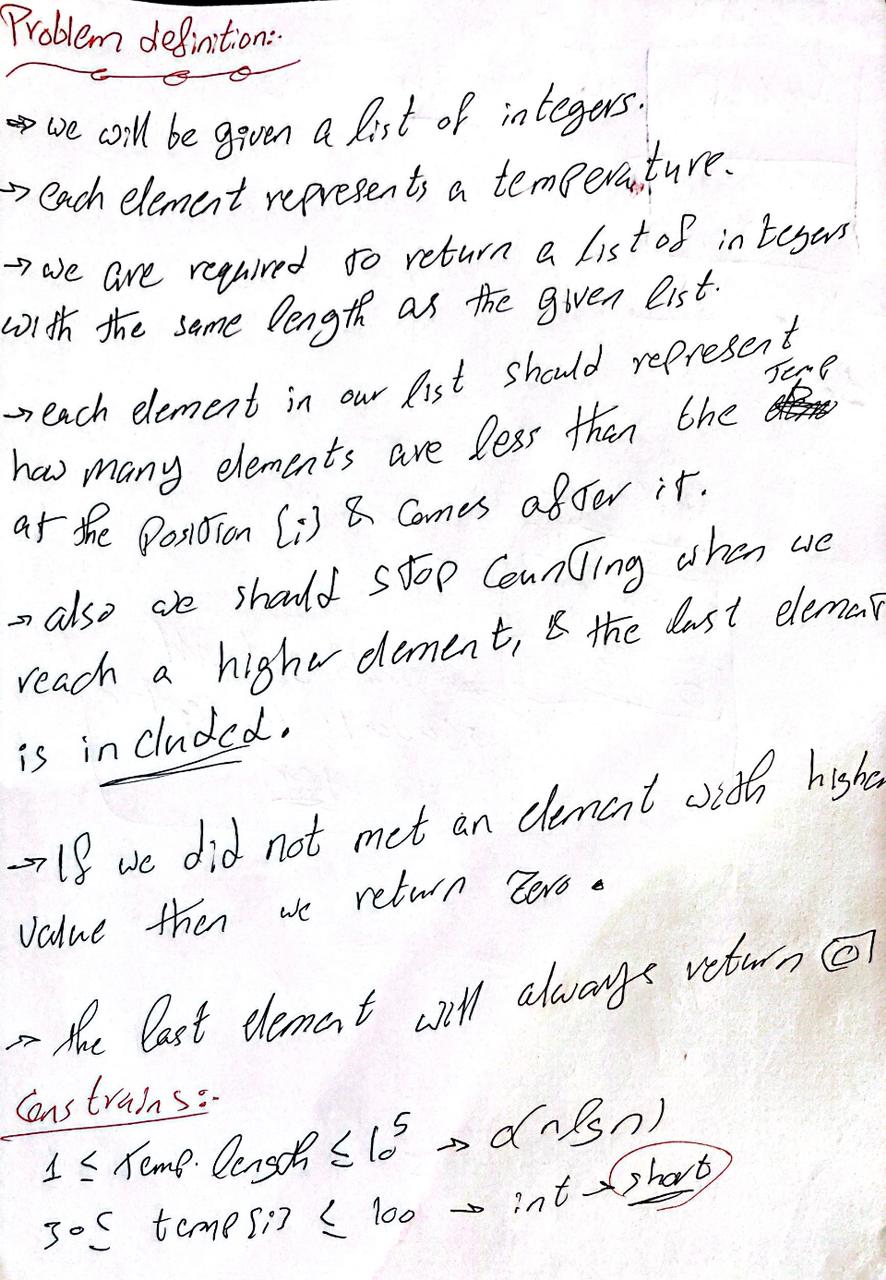 Problem definition:-
→ we will be given a list of integers.
→ each element represents a temperature.
→ we are required to return a list of integers
with the same length as the given list.
→ each element in our list should represent
Temp
how many elements are less than the
at the position [i] & comes after it.
→ also we should stop counting when we
reach a higher element, & the last element
is included.
→ If we did not met an element with higher
value then we return zero.
→ the last element will always return 0
Constrains:-
1 ≤ temp.length ≤ 10⁵ → o(nlgn)
30 ≤ temp[i] ≤ 100 → int → short